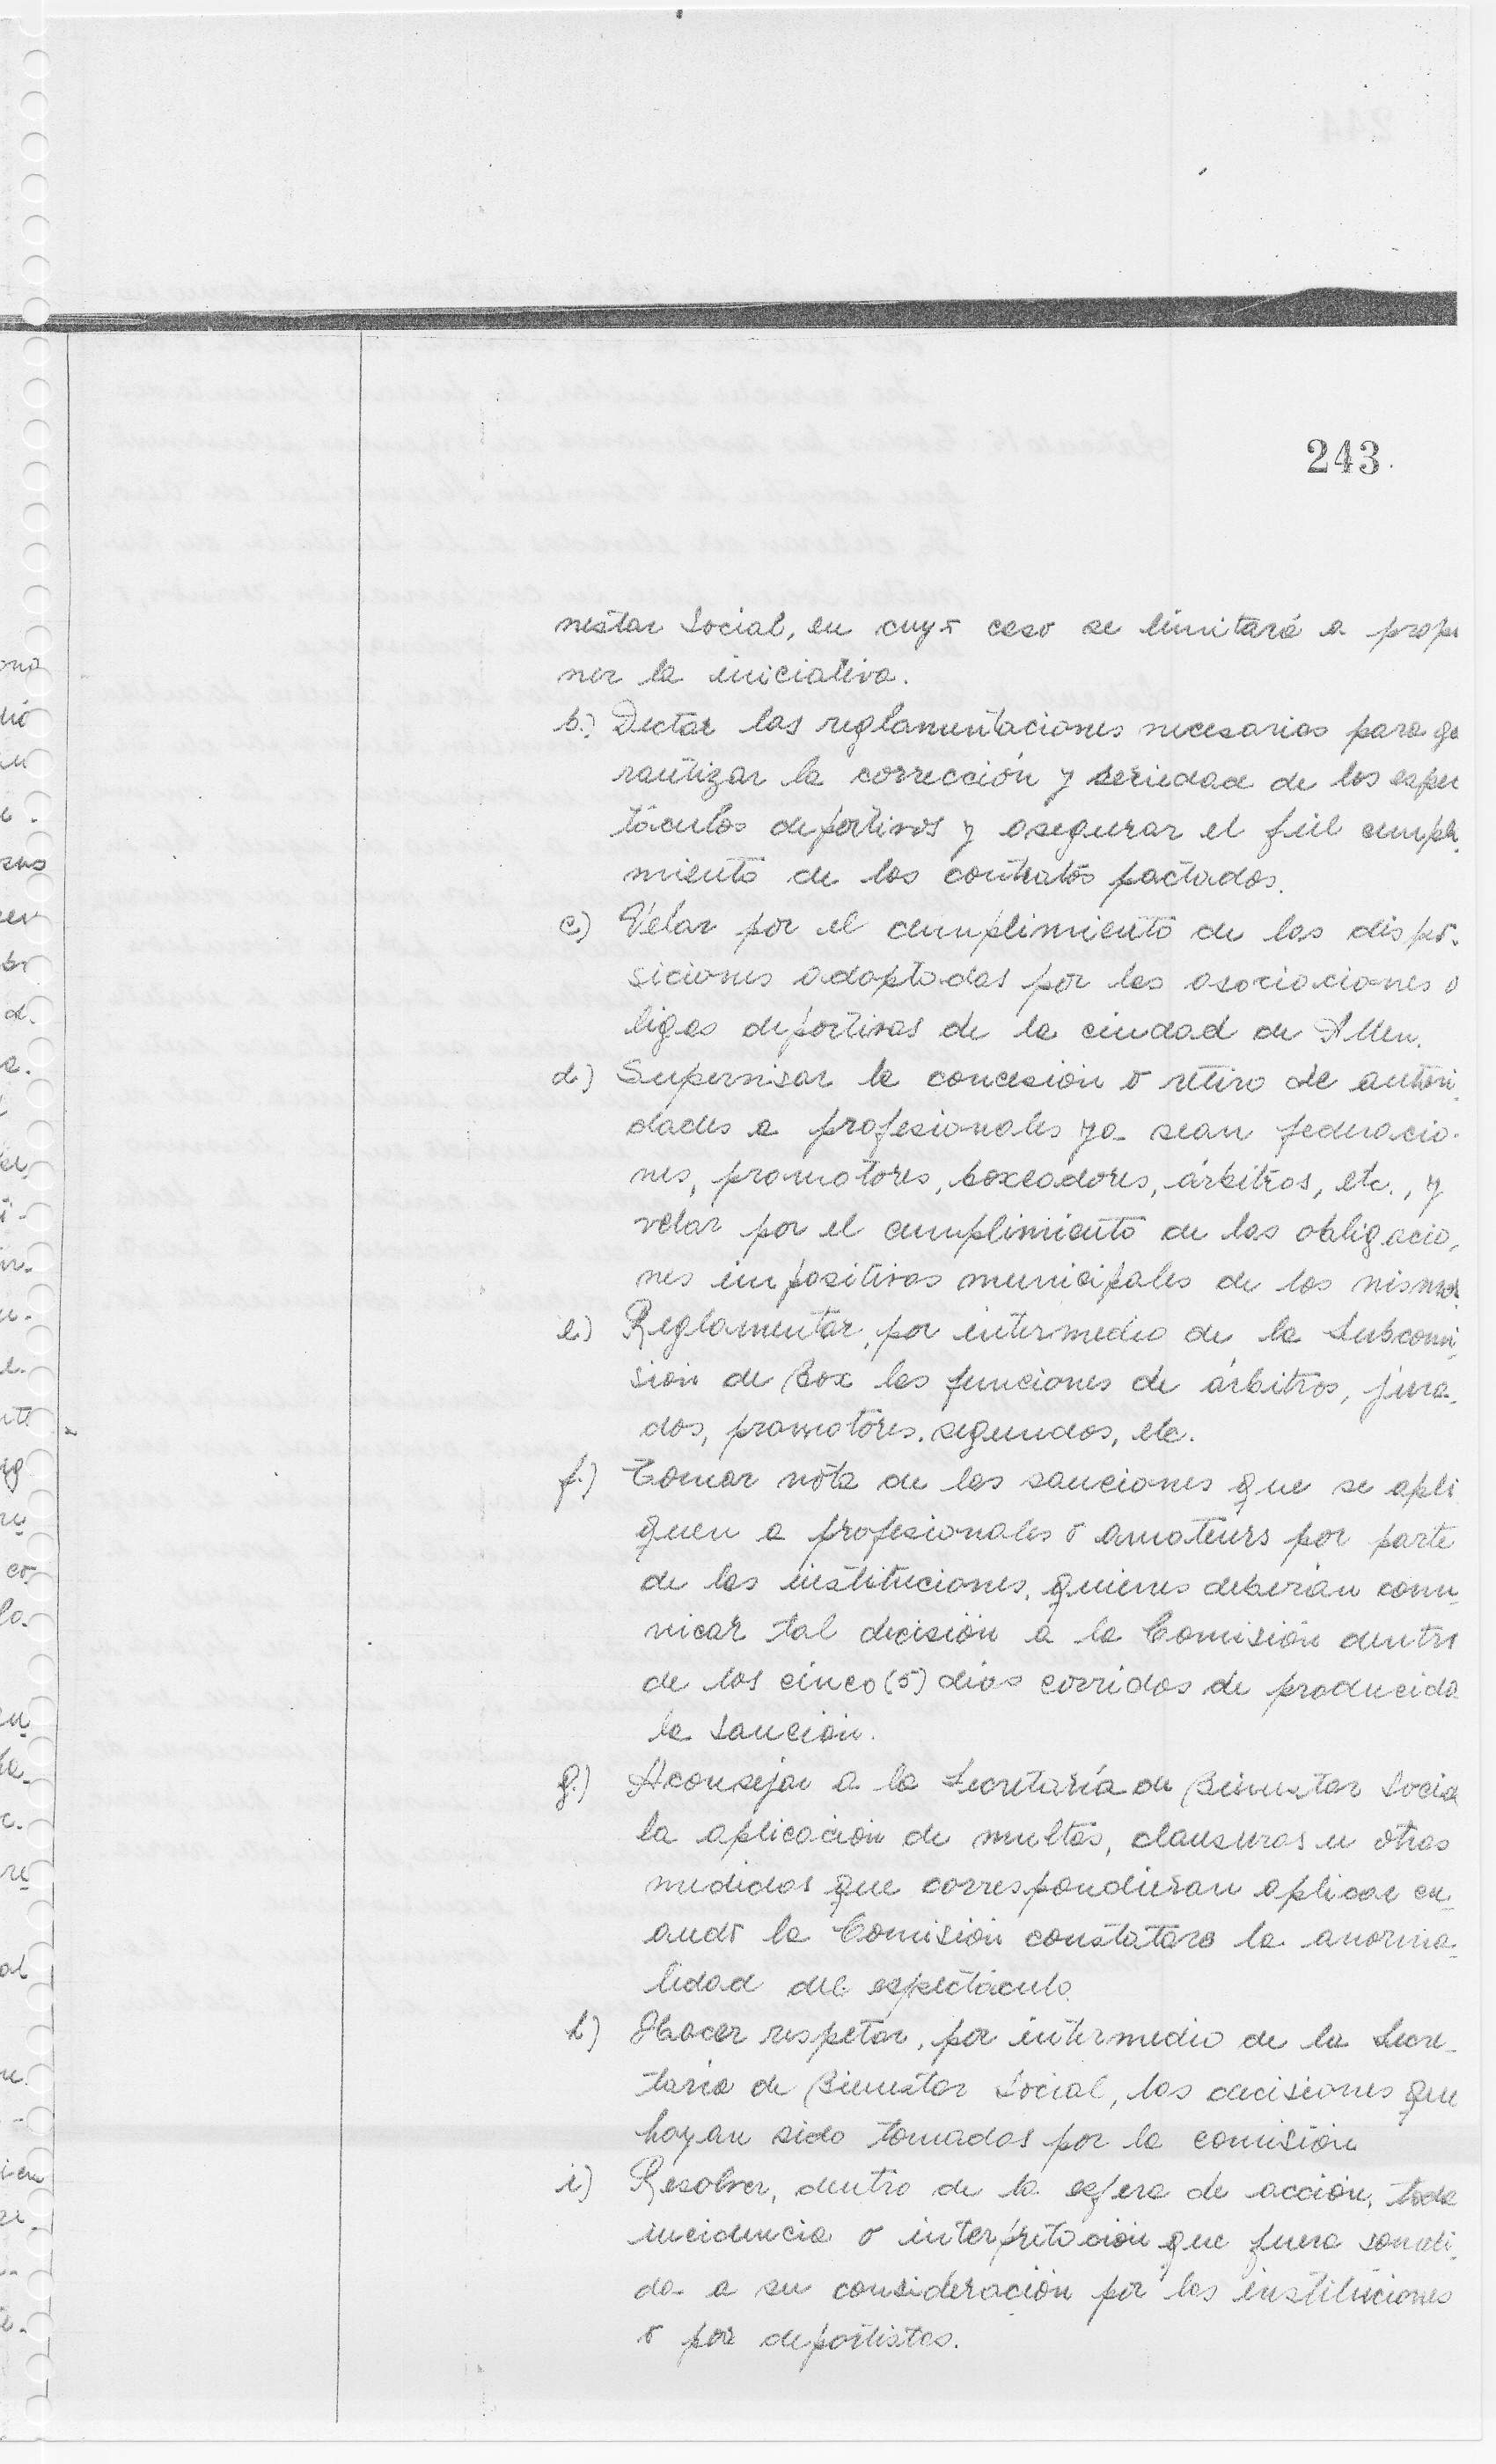 243.
nestar Social, en cuyo caso se limitará a propo
ner la iniciativa.
b.) Dictar las reglamentaciones necesarias para ga
rantizar la corrección y seriedad de los espec
táculos deportivos y asegurar el fiel cumpli
miento de los contratos pactados.
c) Velar por el cumplimiento de las dispo-
siciones adoptadas por las asociaciones o
ligas deportivas de la ciudad de Allen.
d) Supervisar la concesión o retiro de autori
dades a profesionales ya sean federacio-
nes, promotores, boxeadores, árbitros, etc., y
velar por el cumplimiento de las obligacio-
nes impositivas municipales de los mismos.
e) Reglamentar, por intermedio de la Subcomi
sión de Box las funciones de árbitros, jura-
dos, promotores, segundos, etc.
f.) Tomar nota de las sanciones que se apli
quen a profesionales o amateurs por parte
de las instituciones, quienes deberán comu-
nicar tal decisión a la Comisión dentro
de los cinco (5) días corridos de producida
la sanción.
g.) Aconsejar a la Secretaría de Bienestar Socia
la aplicación de multas, clausuras u otras
medidas que correspondieran aplicar cu-
ando la Comisión constatara la anorma-
lidad del espectáculo.
h) Hacer respetar, por intermedio de la Secre-
taría de Bienestar Social, las decisiones que
hayan sido tomadas por la comisión
i) Resolver, dentro de la esfera de acción, toda
incidencia o interpretación que fuera someti-
da a su consideración por las instituciones
o por deportistas.